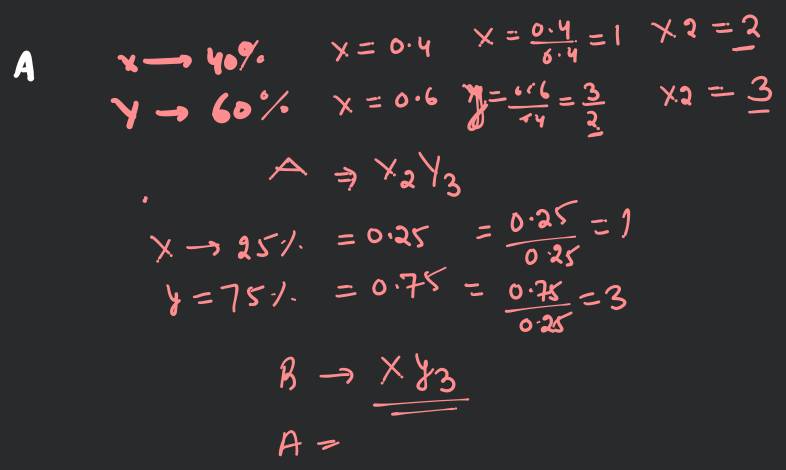 A
x → 40% x = 0.4 x = 0.4/0.4 = 1 x2 = 2
Y → 60% x = 0.6 y = 0.6/0.4 = 3/2 x2 = 3
A ⇒ X₂Y₃
X → 25% = 0.25 = 0.25/0.25 = 1
y = 75% = 0.75 = 0.75/0.25 = 3
B → XY₃
A =